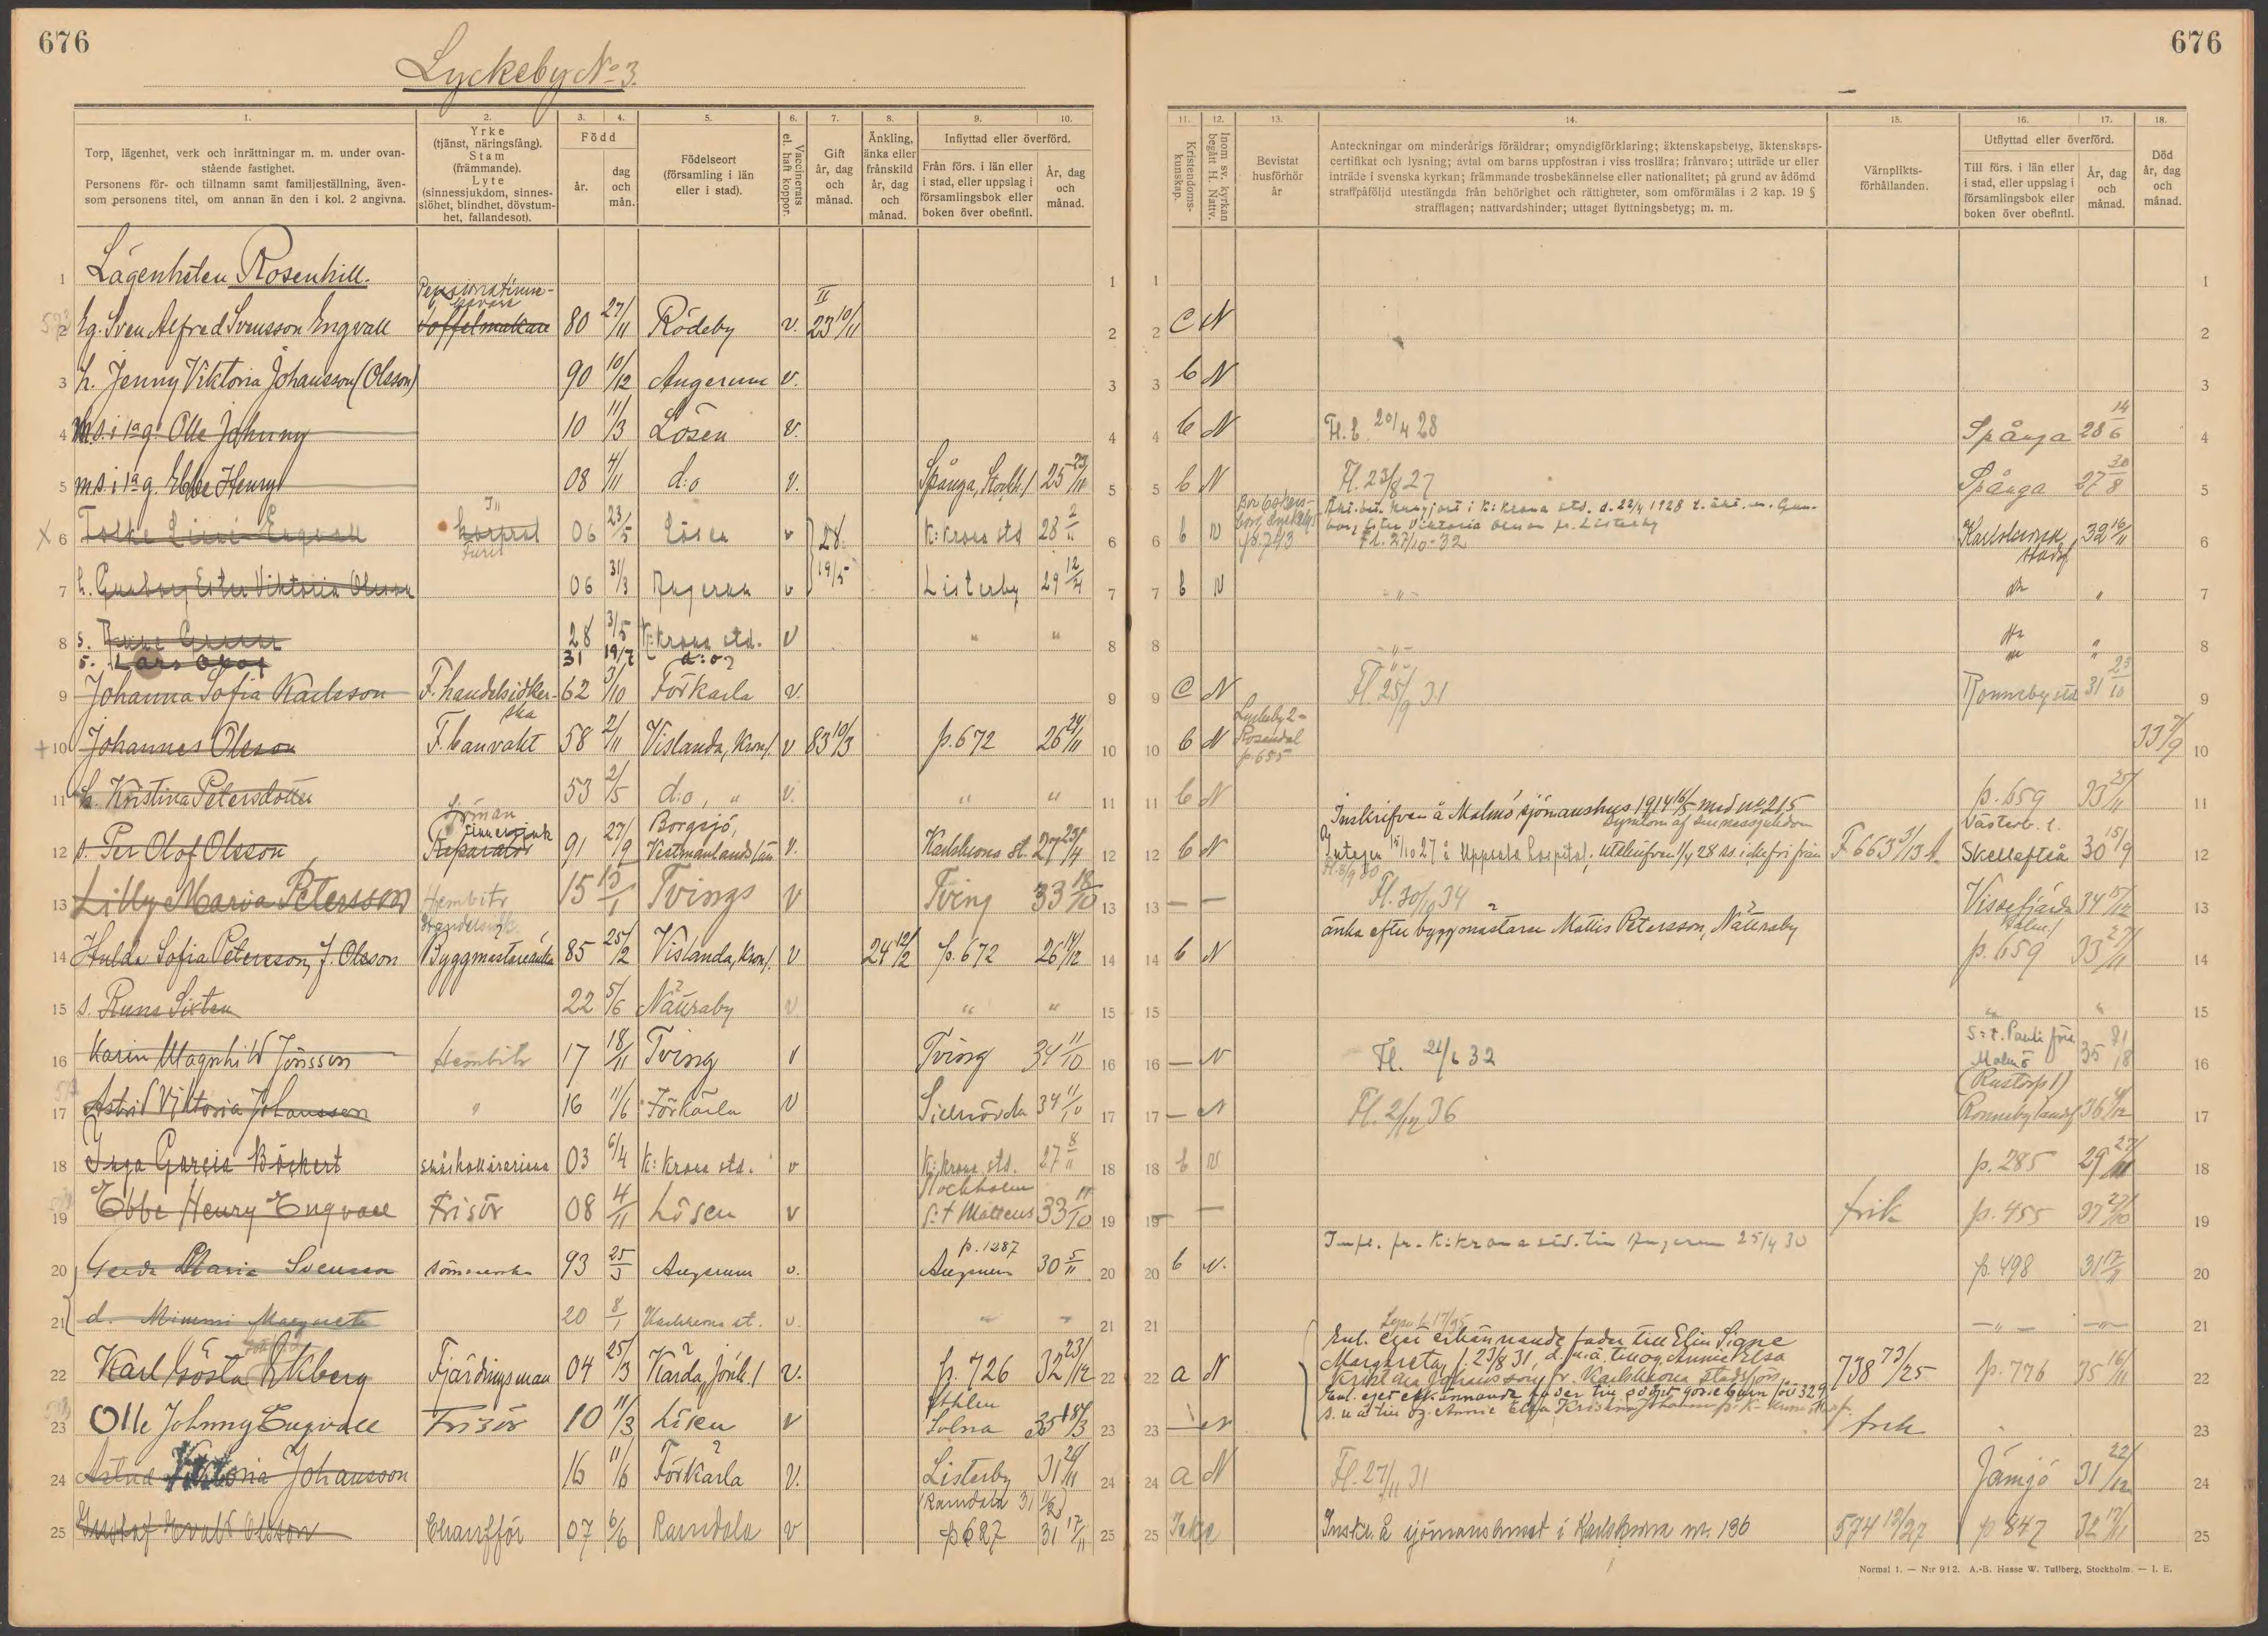 676
Lyckeby No 3.
1. 2. 3. 4. 5. 6. 7. 8. 9. 10.
Torp, lägenhet, verk och inrättningar m. m. under ovan-
stående fastighet.
Personens för- och tillnamn samt familjeställning, även-
som personens titel, om annan än den i kol. 2 angivna.
Yrke
(tjänst, näringsfång).
Stam
(främmande).
Lyte
(sinnessjukdom, sinnes-
slöhet, blindhet, dövstum-
het, fallandesot).
Född
år.
dag
och
mån.
Födelseort
(församling i län
eller i stad).
Vaccinerats
el. haft koppor.
Gift
år, dag
och
månad.
Änkling,
änka eller
frånskild
år, dag
och
månad.
Inflyttad eller överförd.
Från förs. i län eller
i stad, eller uppslag i
församlingsbok eller
boken över obefintl.
År, dag
och
månad.
1 Lägenheten Rosenhill. 1
Pensionatinne-
havare
2 Eg. Sven Alfred Svensson Engvall Toffelmakare 80 27/11 Rödeby v. II 23 10/11 2
3 h. Jenny Viktoria Johansson (Olsson) 90 10/12 Augerum v. 3
4 m s. i 1a g. Olle Johnny 10 11/3 Lösen v. 4
5 m s. i 1a g. Ebbe Henry 08 4/11 d:o v. Spånga, Stockh./ 25 23/11 5
X 6 Folke Engvall korpral Furir 06 23/5 Lösen v 28 K:krona std 28 2/11 6
7 h. Gunborg Ester Viktoria Olsson 06 31/3 Augerum v 19/5 Listerby 29 12/4 7
8 s. Rune 28 3/5 K:krona std. v " " 8
s. Lars Olof 31 19/7 d:o
9 Johanna Sofia Karlsson F. handelsidker-
ska 62 3/10 Förkarla v. 9
+ 10 Johannes Olsson F. banvakt 58 2/11 Vislanda, Kron/. v 83 10/3 p. 672 26 24/11 10
11 h. Kristina Petersdotter 53 2/5 d:o, " v. " " 11
12 s. Per Olof Olsson Reparatör 91 27/9 Borgsjö,
Vestmanlands län v. Karlskrona st. 27 23/4 12
13 Lilly Maria Petersson Hembitr 15 13/1 Tvings v Tving 33 18/10 13
14 Hulda Sofia Petersson, f. Olsson Byggmästareänka 85 25/2 Vislanda, Kron/. v 24 12/2 p. 672 26 14/12 14
15 s. Rune Sixten 22 5/6 Nättraby v " " 15
16 Karin Magnhild Jönsson Hembitr 17 18/11 Tving v Tving 34 11/10 16
17 Astrid Viktoria Johansson " 16 11/6 Förkärla v Sillhövda 34 11/10 17
18 Inga Böckert småskollärarinna 03 6/4 K:krona std. v K:krona std. 27 8/11 18
19 Ebbe Henry Engvall Frisör 08 4/11 Lösen v Stockholm
S:t Matteus 33 11/10 19
20 Gerda Maria Svensson sömmerska 93 25/3 Augerum v. p. 1287
Augerum 30 5/11 20
21 d. Mimmi Margareta 20 8/1 Karlskrona st. v. " " 21
22 Karl Gösta Ekberg Fjärdingsman 04 25/3 Kärda, Jönk./ v. p. 726 32 23/12 22
23 Olle Johnny Engvall Frisör 10 11/3 Lösen v Solna 35 18/3 23
24 Astrid Viktoria Johansson 16 11/6 Förkärla v. Listerby 31 24/11 24
25 Gustaf Evald Olsson Chaufför 07 6/6 Ramdala v (Ramdala 31 11/2)
p 687 31 17/11 25
676
11. 12. 13. 14. 15. 16. 17. 18.
Kristendoms-
kunskap.
Inom sv. kyrkan
begått H. Nattv.
Bevistat
husförhör
år
Anteckningar om minderårigs föräldrar; omyndigförklaring; äktenskapsbetyg, äktenskaps-
certifikat och lysning; avtal om barns uppfostran i viss troslära; frånvaro; utträde ur eller
inträde i svenska kyrkan; främmande trosbekännelse eller nationalitet; på grund av ådömd
straffpåföljd utestängda från behörighet och rättigheter, som omförmälas i 2 kap. 19 §
strafflagen; nattvardshinder; uttaget flyttningsbetyg; m. m.
Värnplikts-
förhållanden.
Utflyttad eller överförd.
Till förs. i län eller
i stad, eller uppslag i
församlingsbok eller
boken över obefintl.
År, dag
och
månad.
Död
år, dag
och
månad.
1 1
2 C N 2
3 b N 3
4 b N Fl. b. 20/4 28 Spånga 28 14/6 4
5 b N Fl. 23/8 27 Spånga 27 30/8 5
6 b N p. 743 i K:krona std. d. 22/4 1928 Gun-
borg Ester Viktoria Olsson fr. Listerby
Fl. 27/10-32 Karlskrona
stadsf. 32 16/11 6
7 b N - " - " 7
8 - " - " 8
9 C N Fl 25/9 31 Ronneby std 31 23/10 9
10 b N Lyckeby 2 -
Rosendal
p 685 33 7/9 10
11 b N p. 659 33 25/11 11
Inskrifven å Malmö sjömanshus 1914 16/5 med no 215
Symtom af sinnessjukdom
12 b N Intagen 15/10 27 å Uppsala hospital, utskrifven 1/4 28 F 663 3/13 Västerb. l.
Skellefteå 30 15/9 12
13 — — Fl. 30/10 34 Vissefjärda
Kalm/ 34 15/12 13
14 b N änka efter byggmästaren Mattis Petersson, Nättraby p. 659 33 27/11 14
15 " " 15
16 — N Fl. 21/6 32 S:t Pauli förs.
Malmö 35 16
(Rustorp 1)
17 — N Fl. 2/12 36 Ronneby landsf 36 17
18 b N p. 285 29 27/11 18
19 — — frik p. 455 37 27/10 19
Infl. fr. K:krona std. till Augerum 25/4 30
20 b N. p. 498 31 17/11 20
21 — " — — " — 21
Enl. eget erkännande fader till Elin Signe
22 a N Margareta, f. 23/8 31, d. u. ä. till og. Annie Elsa
Kristina Johansson, fr. Karlskrona stadsförs. 738 73/25 p. 776 35 16/11 22
23 — N s. u ä till og. Annie Elsa Kristina Johansson frik 23
24 a N Fl. 27/11 31 Jämjö 31 22/12 24
25 Inskr. å sjömanshuset i Karlskrona nr. 136 574 13/27 p 847 32 25
Normal 1. — N:r 912. A.-B. Hasse W. Tullberg, Stockholm. — I. E.